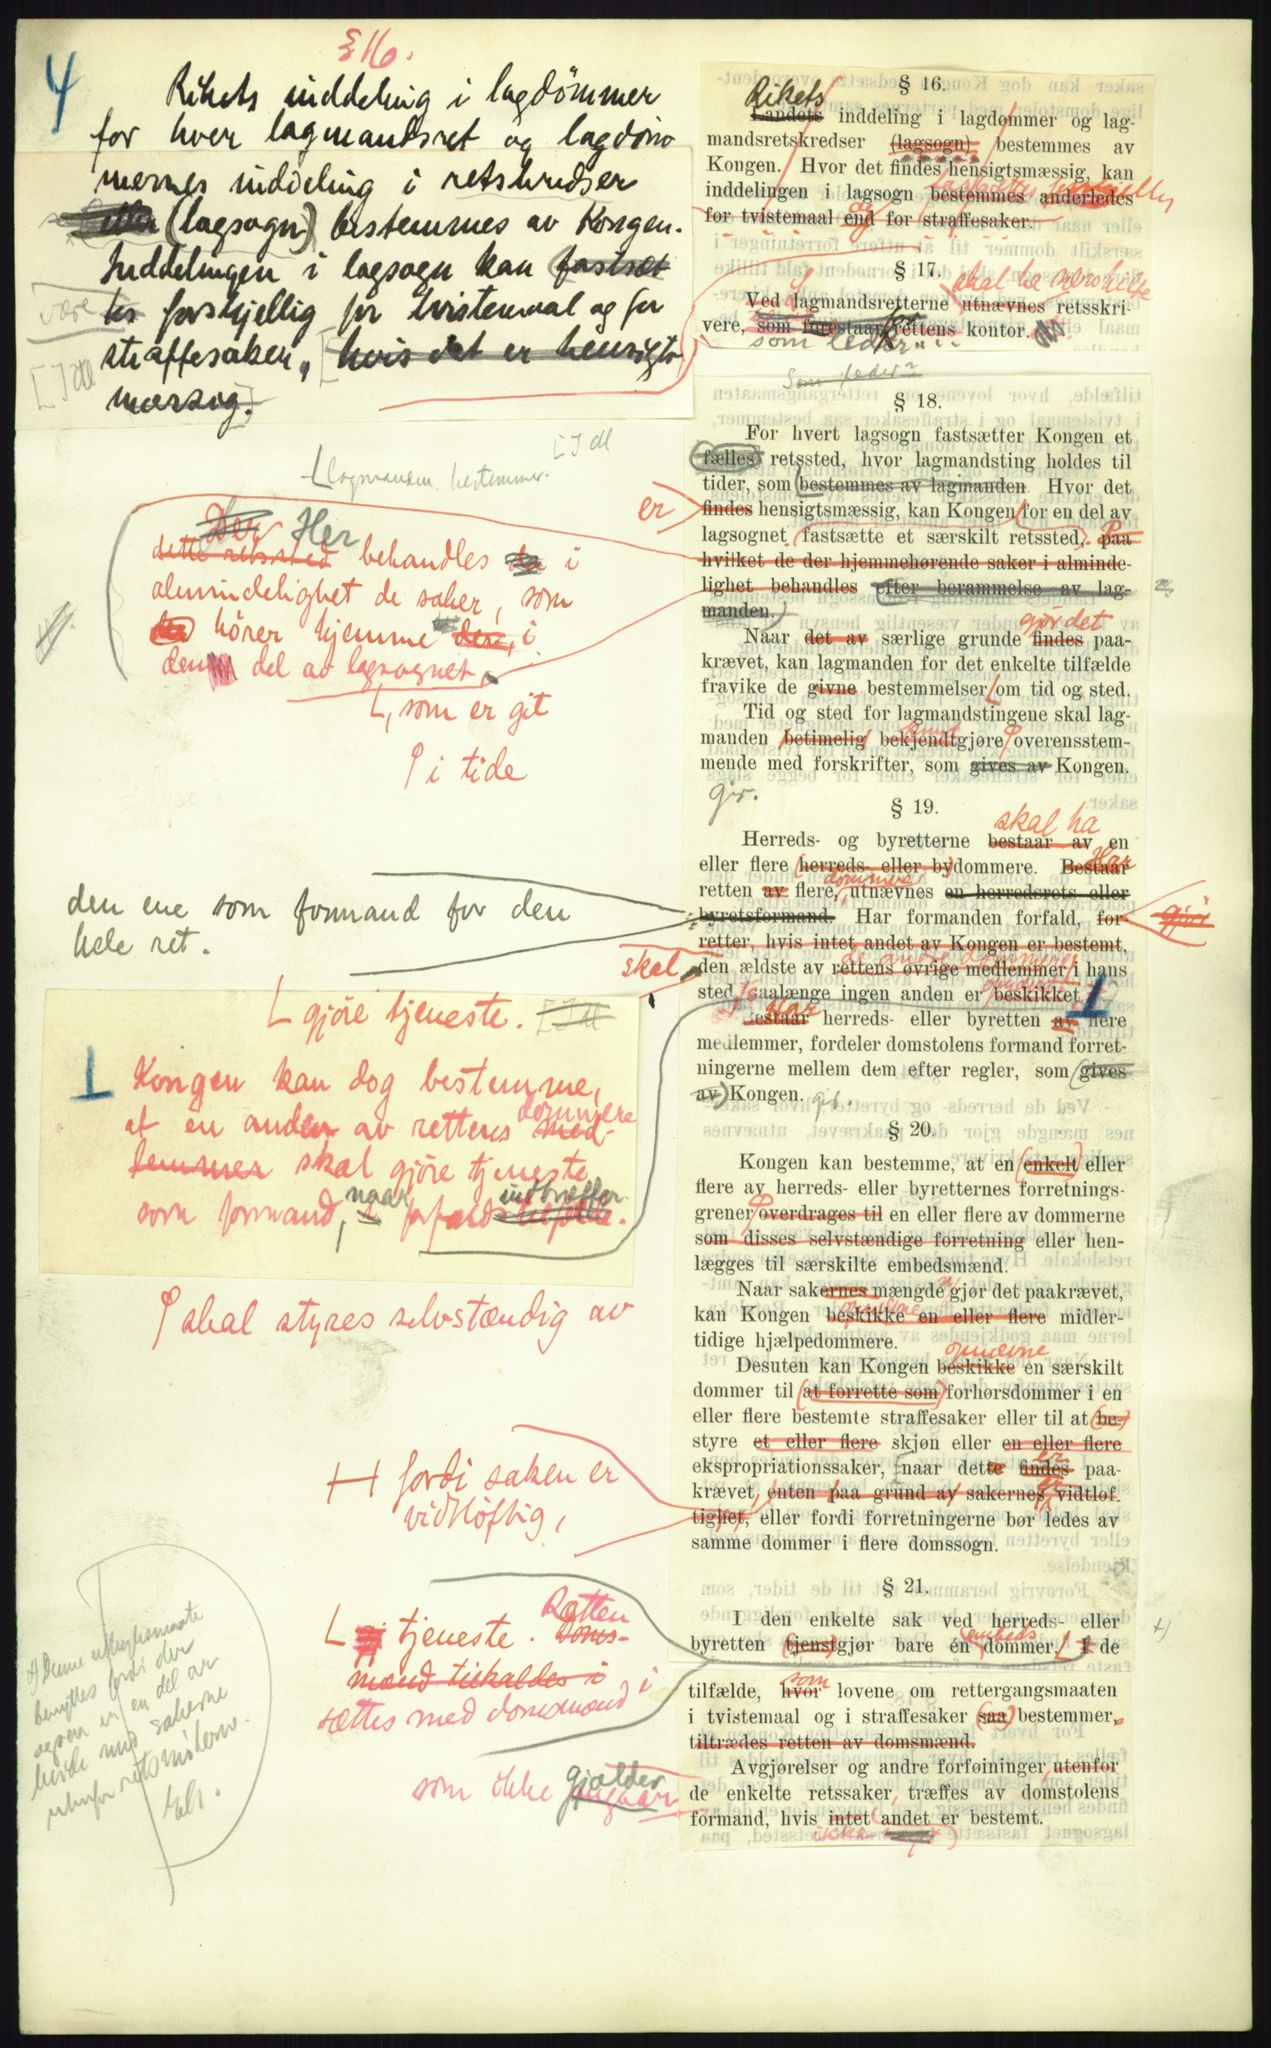 4
§ 16.
Rikets inddeling i lagdömmer
for hver lagmandsret og lagdöm
mernes inddeling i retskredser
eller (lagsogn) bestemmes av Kongen.
Inddelingen i lagsogn kan fastsæt
tes forskjellig for tvistemaal og for
være
straffesaker, [hvis det er hensigts
[ ] dl
mæssig.]
L lagmanden bestemmer
[ ] dl
Der Her
dette retssted behandles de i
almindelighet de saker, som
hörer hjemme der, i
den del av lagsognet.
L, som er git
i tide
den ene som formand for den
hele ret.
skal
L gjöre tjeneste. [ ] dl
1 Kongen kan dog bestemme,
at en anden av rettens med- dommere
lemmer skal gjöre tjeneste
som formand, naar forfald indtræffer
skal styres selvstændig av
H fordi saken er
vidtlöftig,
L tjeneste. Retten Doms-
mænd tilkaldes i
sættes med domsmænd i
som ikke gjælder angaar
+) Denne uttryksmaate
benyttes fordi der
ogsaa er en del av
herde med sakerne
utenfor retsmöterne.
§ 16.
Rikets
Landets inddeling i lagdommer og lag-
mandsretskredser (lagsogn) bestemmes av
Kongen. Hvor det findes hensigtsmæssig, kan
inddelingen i lagsogn bestemmes anderledes
for tvistemaal end for straffesaker.
og
§ 17.
skal ha særskilte
Ved lagmandsretterne utnævnes retsskri-
vere, som forestaar rettens kontor.
som leder
Som leder
§ 18.
For hvert lagsogn fastsætter Kongen et
fælles retssted, hvor lagmandsting holdes til
tider, som bestemmes av lagmanden. Hvor det
er
findes hensigtsmæssig, kan Kongen for en del av
lagsognet fastsætte et særskilt retssted, paa
hvilket de der hjemmehørende saker i alminde-
lighet behandles efter berammelse av lag-
manden.
gjør det
Naar det av særlige grunde findes paa-
krævet, kan lagmanden for det enkelte tilfælde
fravike de givne bestemmelser om tid og sted.
Tid og sted for lagmandstingene skal lag-
kund
manden betimelig bekjendtgjøre overensstem-
mende med forskrifter, som gives av Kongen.
gir.
§ 19.
skal ha
Herreds- og byretterne bestaar av en
Har
eller flere (herreds- eller by)dommere. Bestaar
dommere
retten av flere, utnævnes en herredsrets eller
byretsformand. Har formanden forfald, for-
gjør
retter, hvis intet andet av Kongen er bestemt,
de andre dommere
den ældste av rettens øvrige medlemmer i hans
sted, saalænge ingen anden er beskikket.
1
Har
Bestaar herreds- eller byretten av flere
medlemmer, fordeler domstolens formand forret-
ningerne mellem dem efter regler, som (gives
av) Kongen. gir.
§ 20.
Kongen kan bestemme, at en (enkelt) eller
flere av herreds- eller byretternes forretnings-
grener overdrages til en eller flere av dommerne
som disses selvstændige forretning eller hen-
lægges til særskilte embedsmænd.
Naar sakernes mængde gjør det paakrævet,
opnævne
kan Kongen beskikke en eller flere midler-
tidige hjælpedommere.
opnævne
Desuten kan Kongen beskikke en særskilt
dommer til (at forrette som) forhørsdommer i en
eller flere bestemte straffesaker eller til at (be-)
styre et eller flere skjøn eller en eller flere
er
ekspropriationssaker, naar dette findes paa-
krævet, enten paa grund av sakernes vidtløf-
tighet, eller fordi forretningerne bør ledes av
samme dommer i flere domssogn.
§ 21.
I den enkelte sak ved herreds- eller
embeds
byretten (tjenst)gjør bare én dommer. I de
+)
som
tilfælde, hvor lovene om rettergangsmaaten
i tvistemaal og i straffesaker (saa) bestemmer,
tiltrædes retten av domsmænd.
Avgjørelser og andre forføininger utenfor
de enkelte retssaker, træffes av domstolens
formand, hvis intet andet er bestemt.
ikke